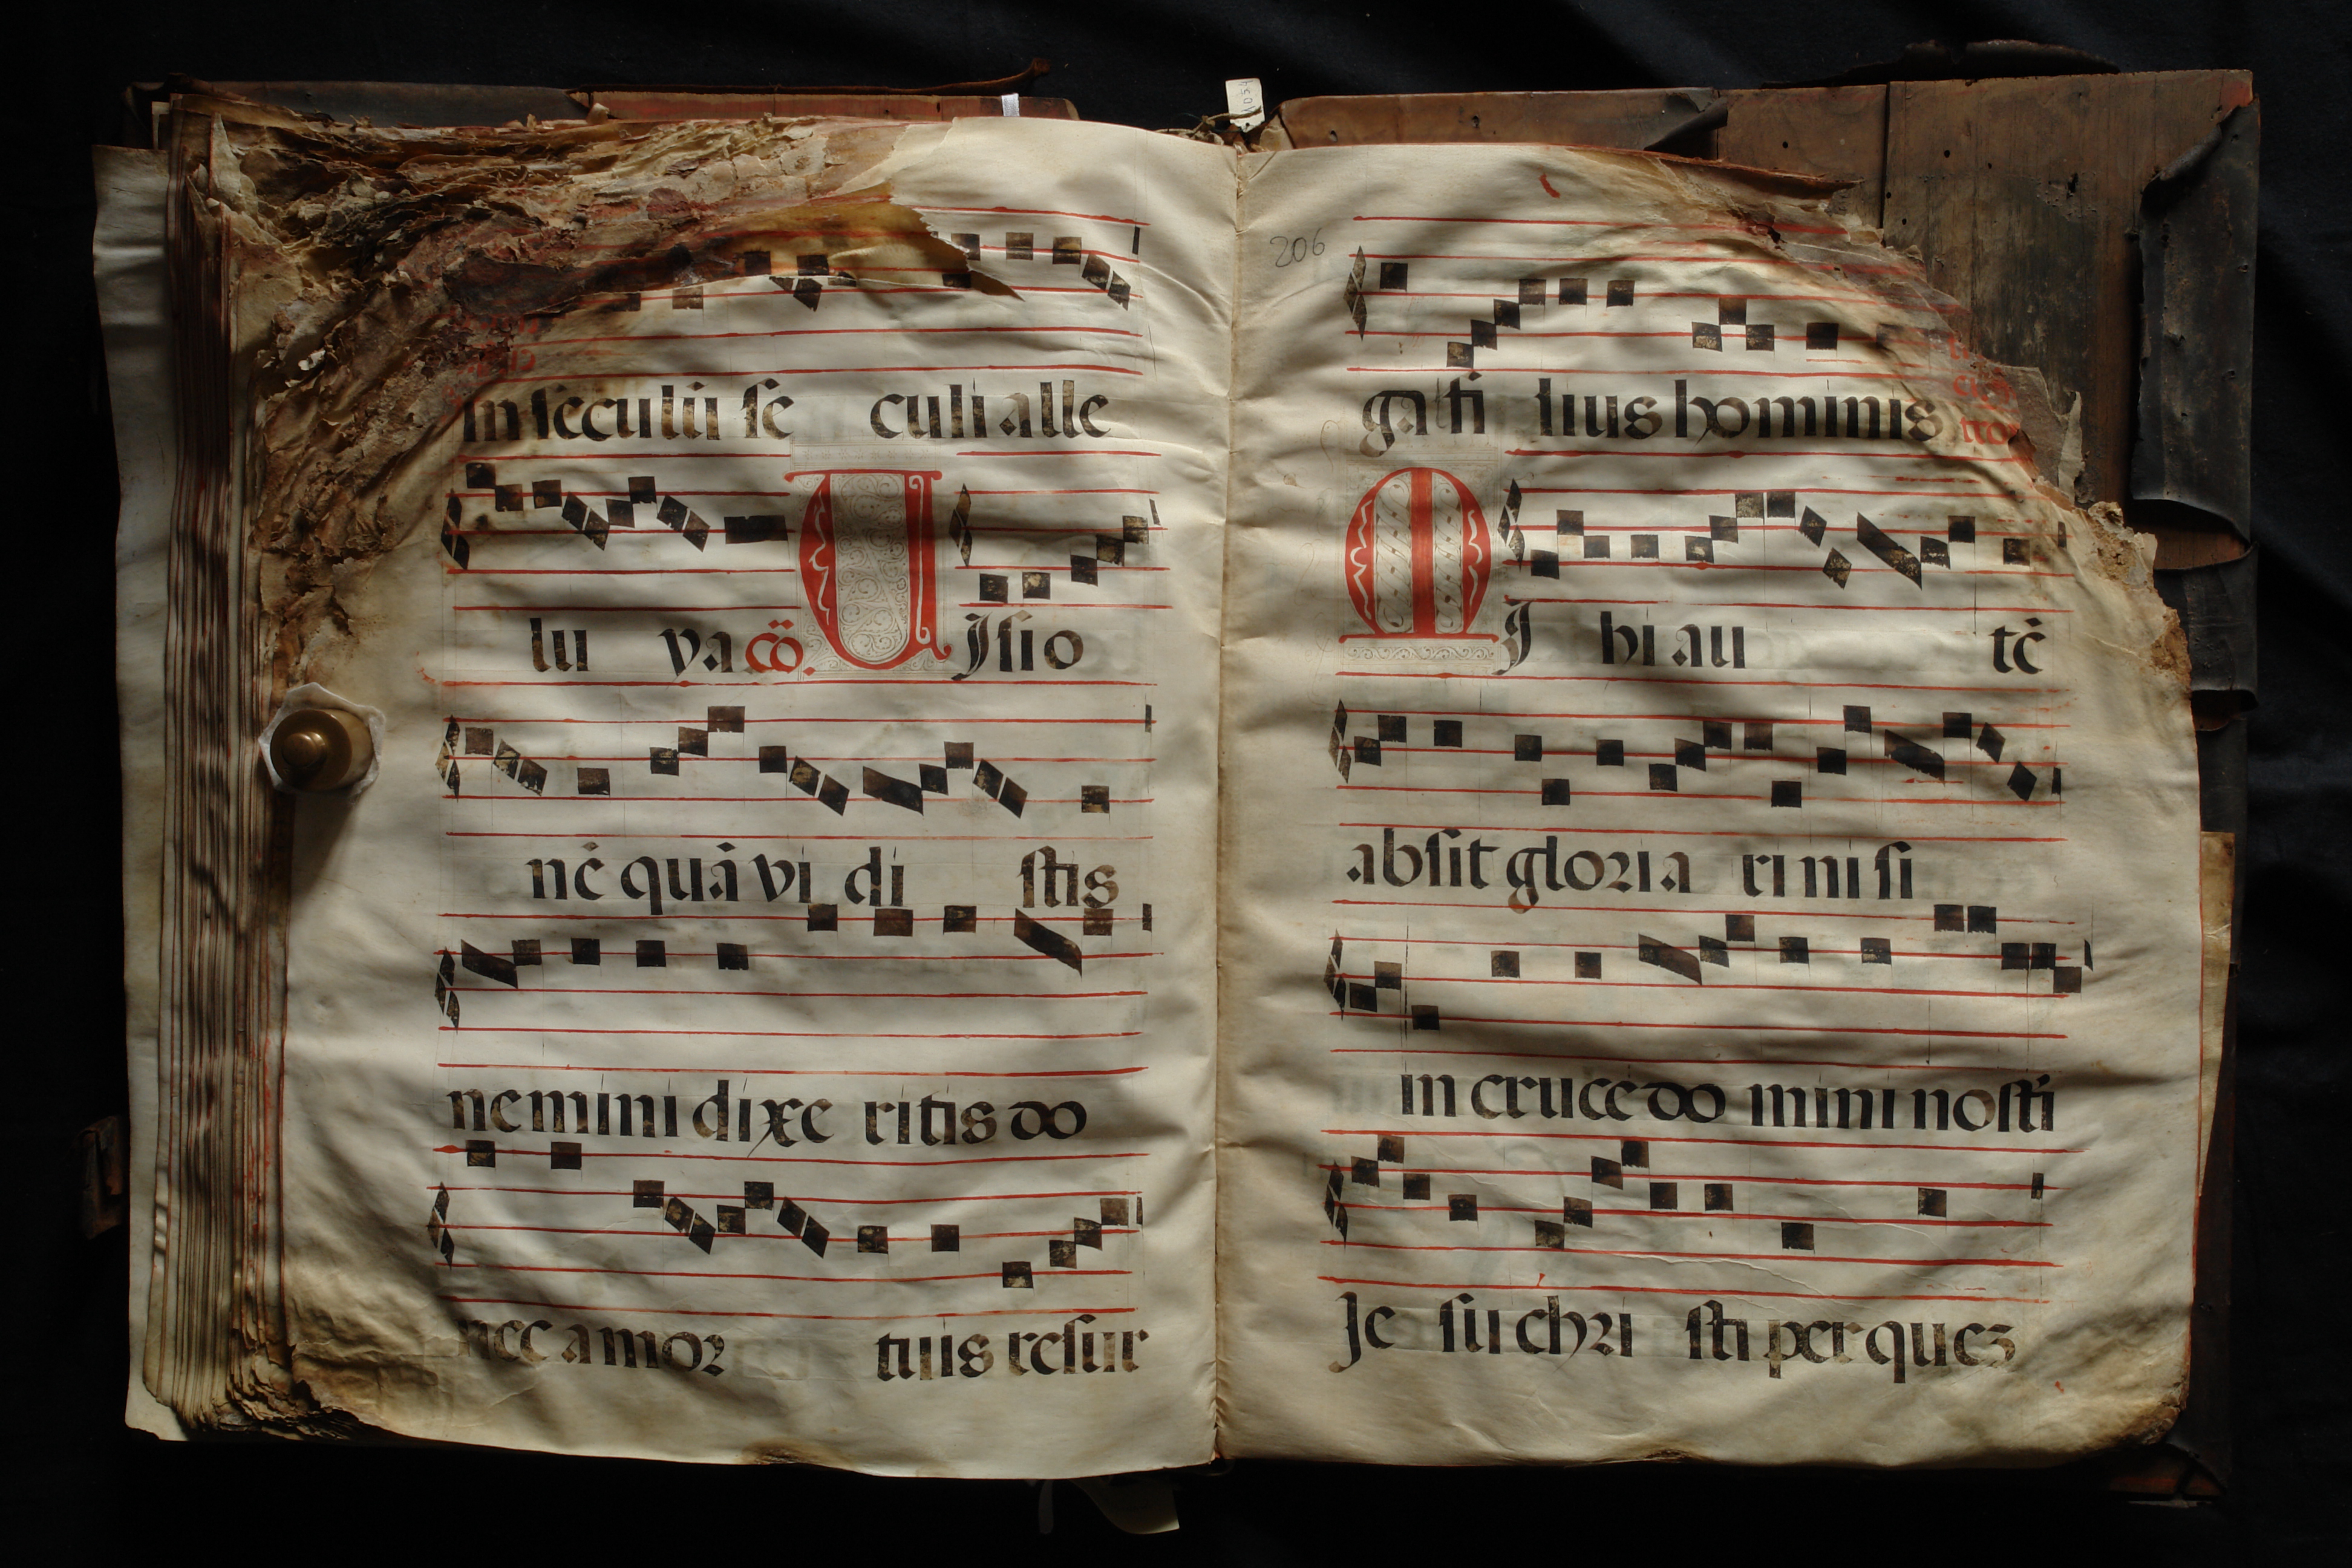 in seculū se culi alle
lu ya cō. U Isio
nē quā vi di stis
nemini dixe ritis do
nec a mor tuis resur
206
ga ti lius hominis
M I hi au tē
absit gloria ri ni si
in cruce do mini nosti
Je su chri sti per quez